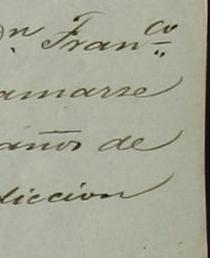 Dn Franco
amarse
años de
diccion